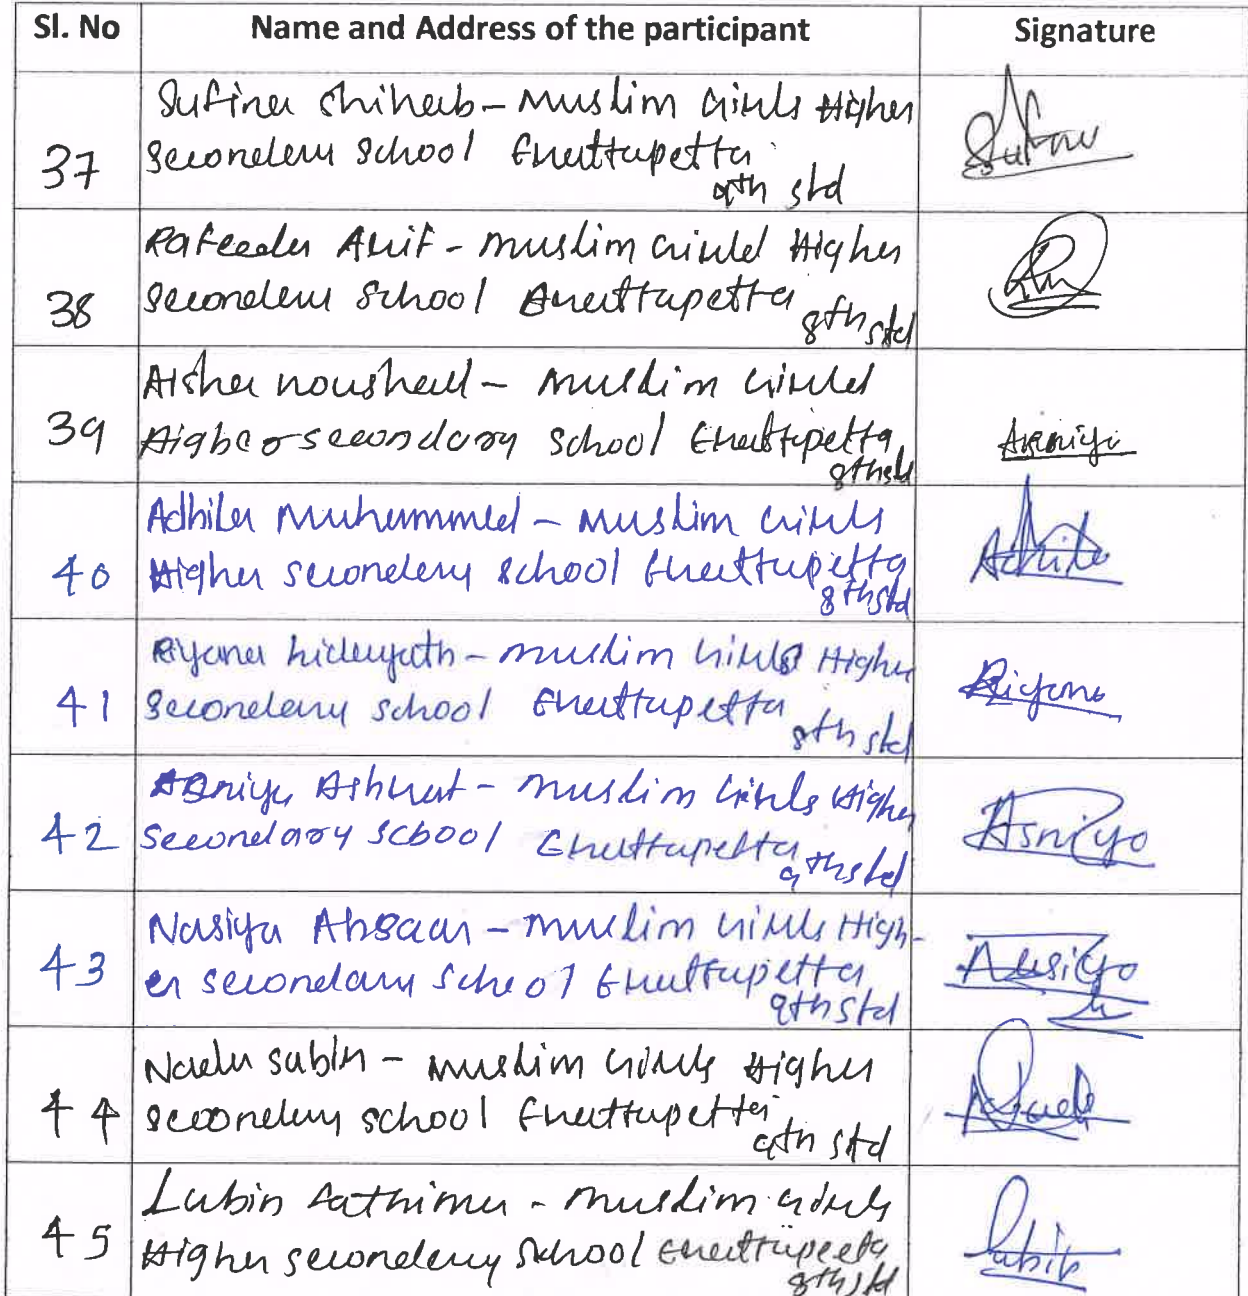 Sl. No Name and Address of the participant Signature
37 Sufina Shihab - Muslim Girls Higher
Secondary School Erattupetta
9th std
38 Rafeeda Arif - Muslim Girls Higher
Secondary School Erattupetta
8th std
39 Aisha noushad - Muslim Girls
Higher secondary School Erattupetta
8th std
40 Adhila Muhammed - Muslim Girls Adhila
Higher secondary school Erattupetta
8th std
41 Riyana hidayath - muslim Girls Higher Riyana
Secondary school Erattupetta
8th std
42 Asniya Ashraf - muslim Girls Higher Asniya
Secondary School Erattupetta
9th std
43 Nasiya - muslim Girls High-
er secondary School Erattupetta
9th std
44 sabin - muslim Girls Higher
secondary school Erattupetta
9th std
45 Lubin Fathima - muslim Girls
Higher secondary School Erattupetta Lubin
8th std